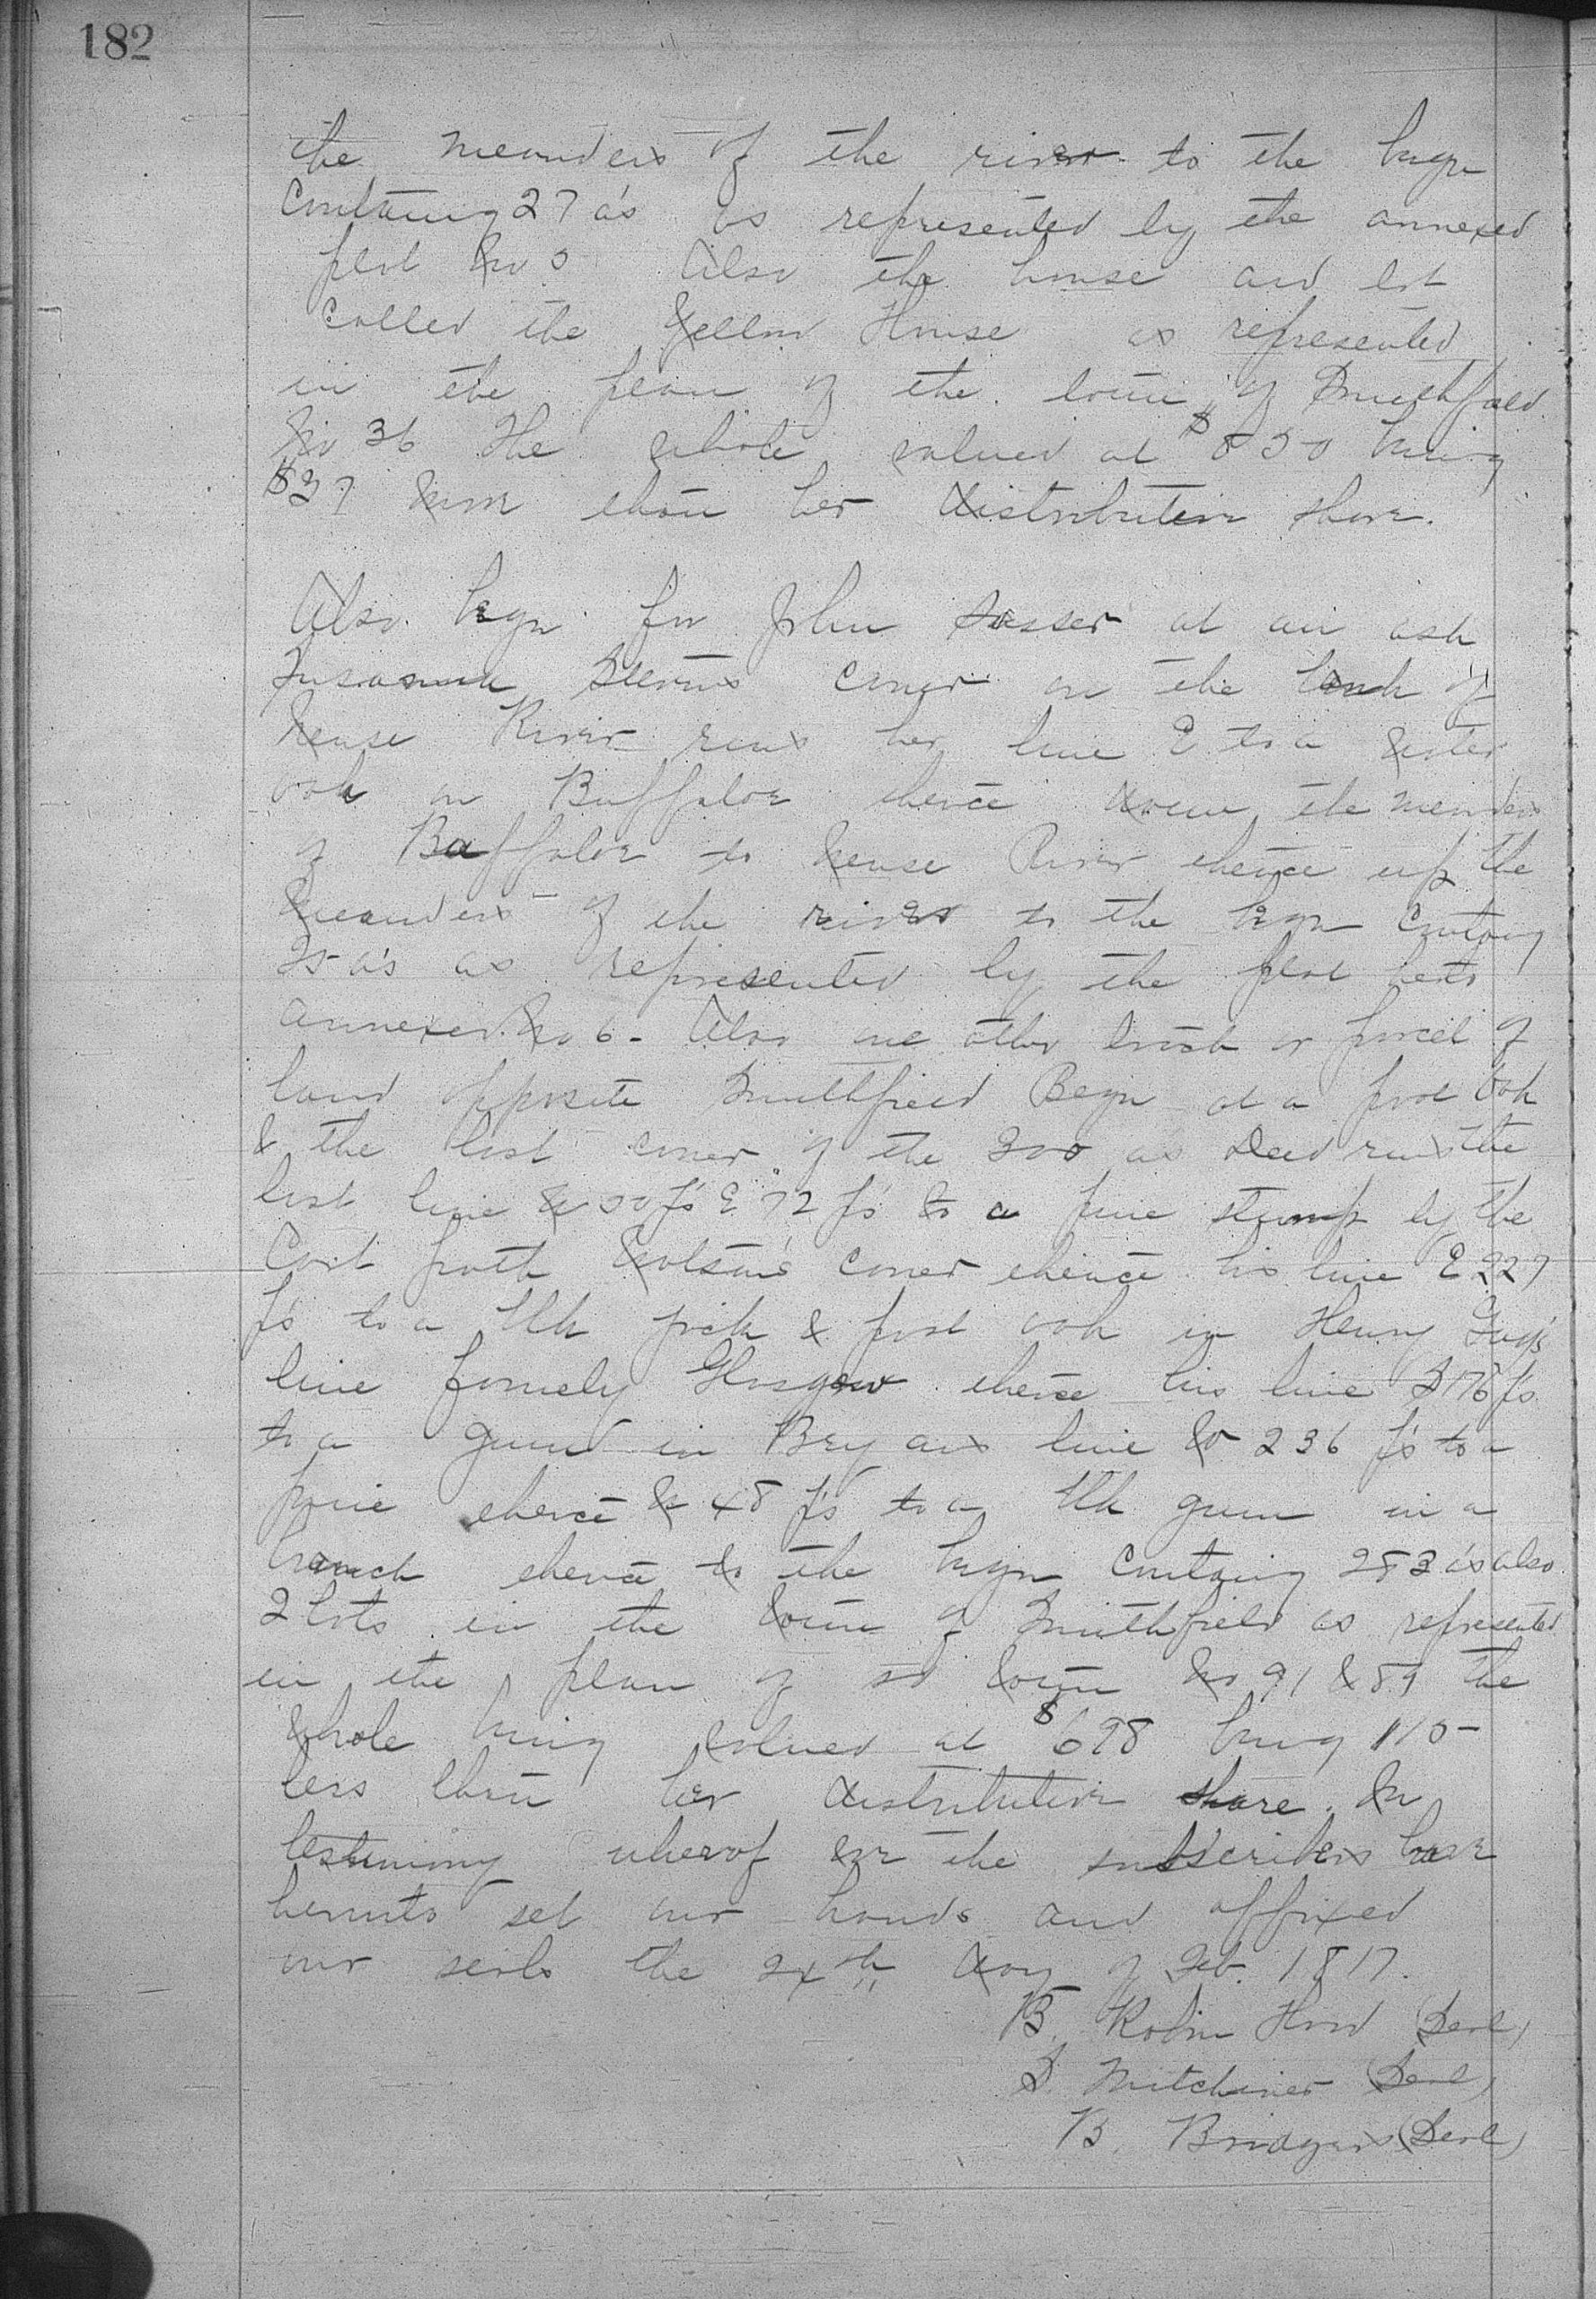 182
the meanders of the river to the begn
Containg 27 a's as represented by the annexed
plot No 5 Also the house and lot
called the Yellow House as represented
in the plan of the town of Smithfield
No 36 The whole valued at $850 being
$37 more than her distributive share.
Also begn for John Sasser at an ash
Susannah Stevens corner on the bank of
Neuse River runs her line E to a water
oak on Buffaloe thence down the meanders
of Buffaloe to Neuse River thence up the
meanders of the river to the begn Containg
25 a's as represented by the plot hereto
annexed No 6 - Also one other tract or parcel of
land opposite Smithfield Begn at a post oak
& the last corner of the 300 as Deed runs the
last line N 50 p's E 72 p's to a pine stump by the
Cart path Watson's corner thence his line E 227
p's to a blk jack & post oak in Henry Guy's
line formely Glasgow thence his line S 176 p's
to a gum in Bryans line W 236 p's to a
pine thence N 48 p's to a blk gum in a
branch thence to the begn Containg 283 a's also
2 lots in the town of Smithfield as represented
in the plan of sd town No 91 & 89 the
whole being valued at $698 being 115
less than her distributive share. In
testimony whereof we the subscribers have
hereunto set our hands and affixed
our seals the 24th day of Feb. 1817.
B. Robin Hood (Seal)
S. Mitchiner (Seal)
B. Bridgers (Seal)